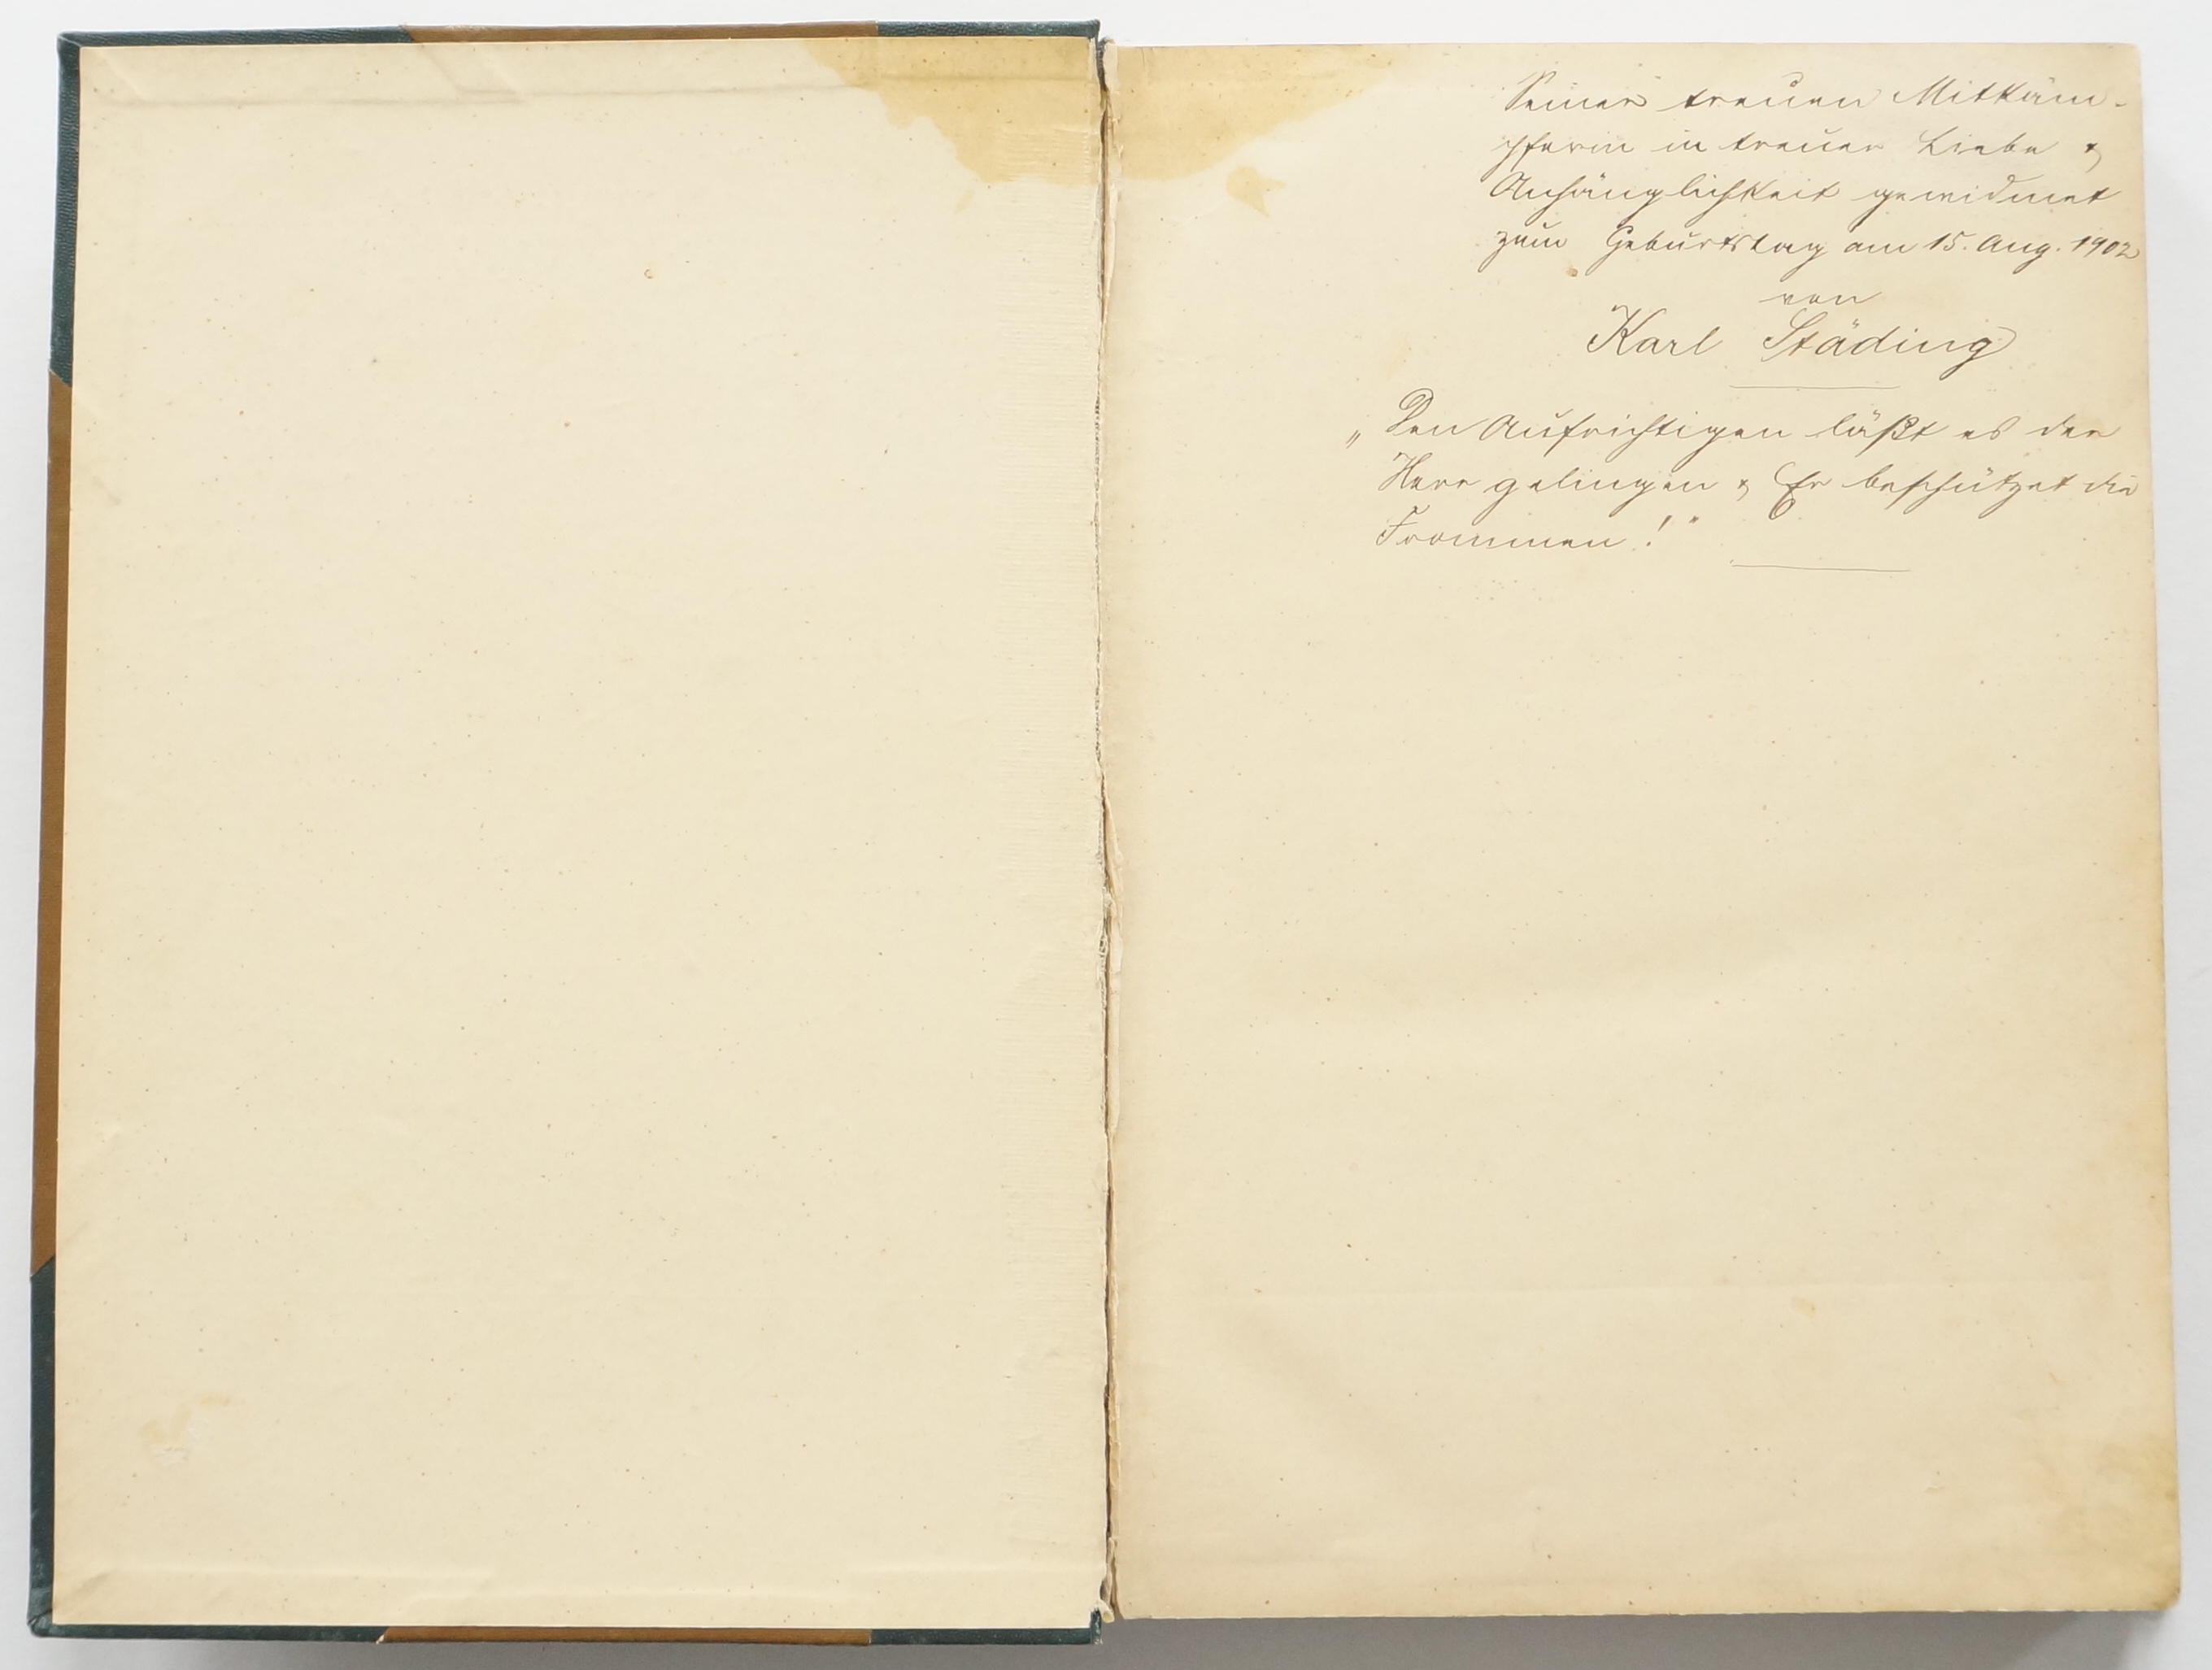 Seiner treuen Mitkäm-
pferin in treuer Liebe &
Anhänglichkeit gewidmet
zum Geburtstag am 15. Aug. 1902
von
Karl Städing
„Den Aufrichtigen läßt es der
Herr gelingen & Er beschützet die
Frommen!"